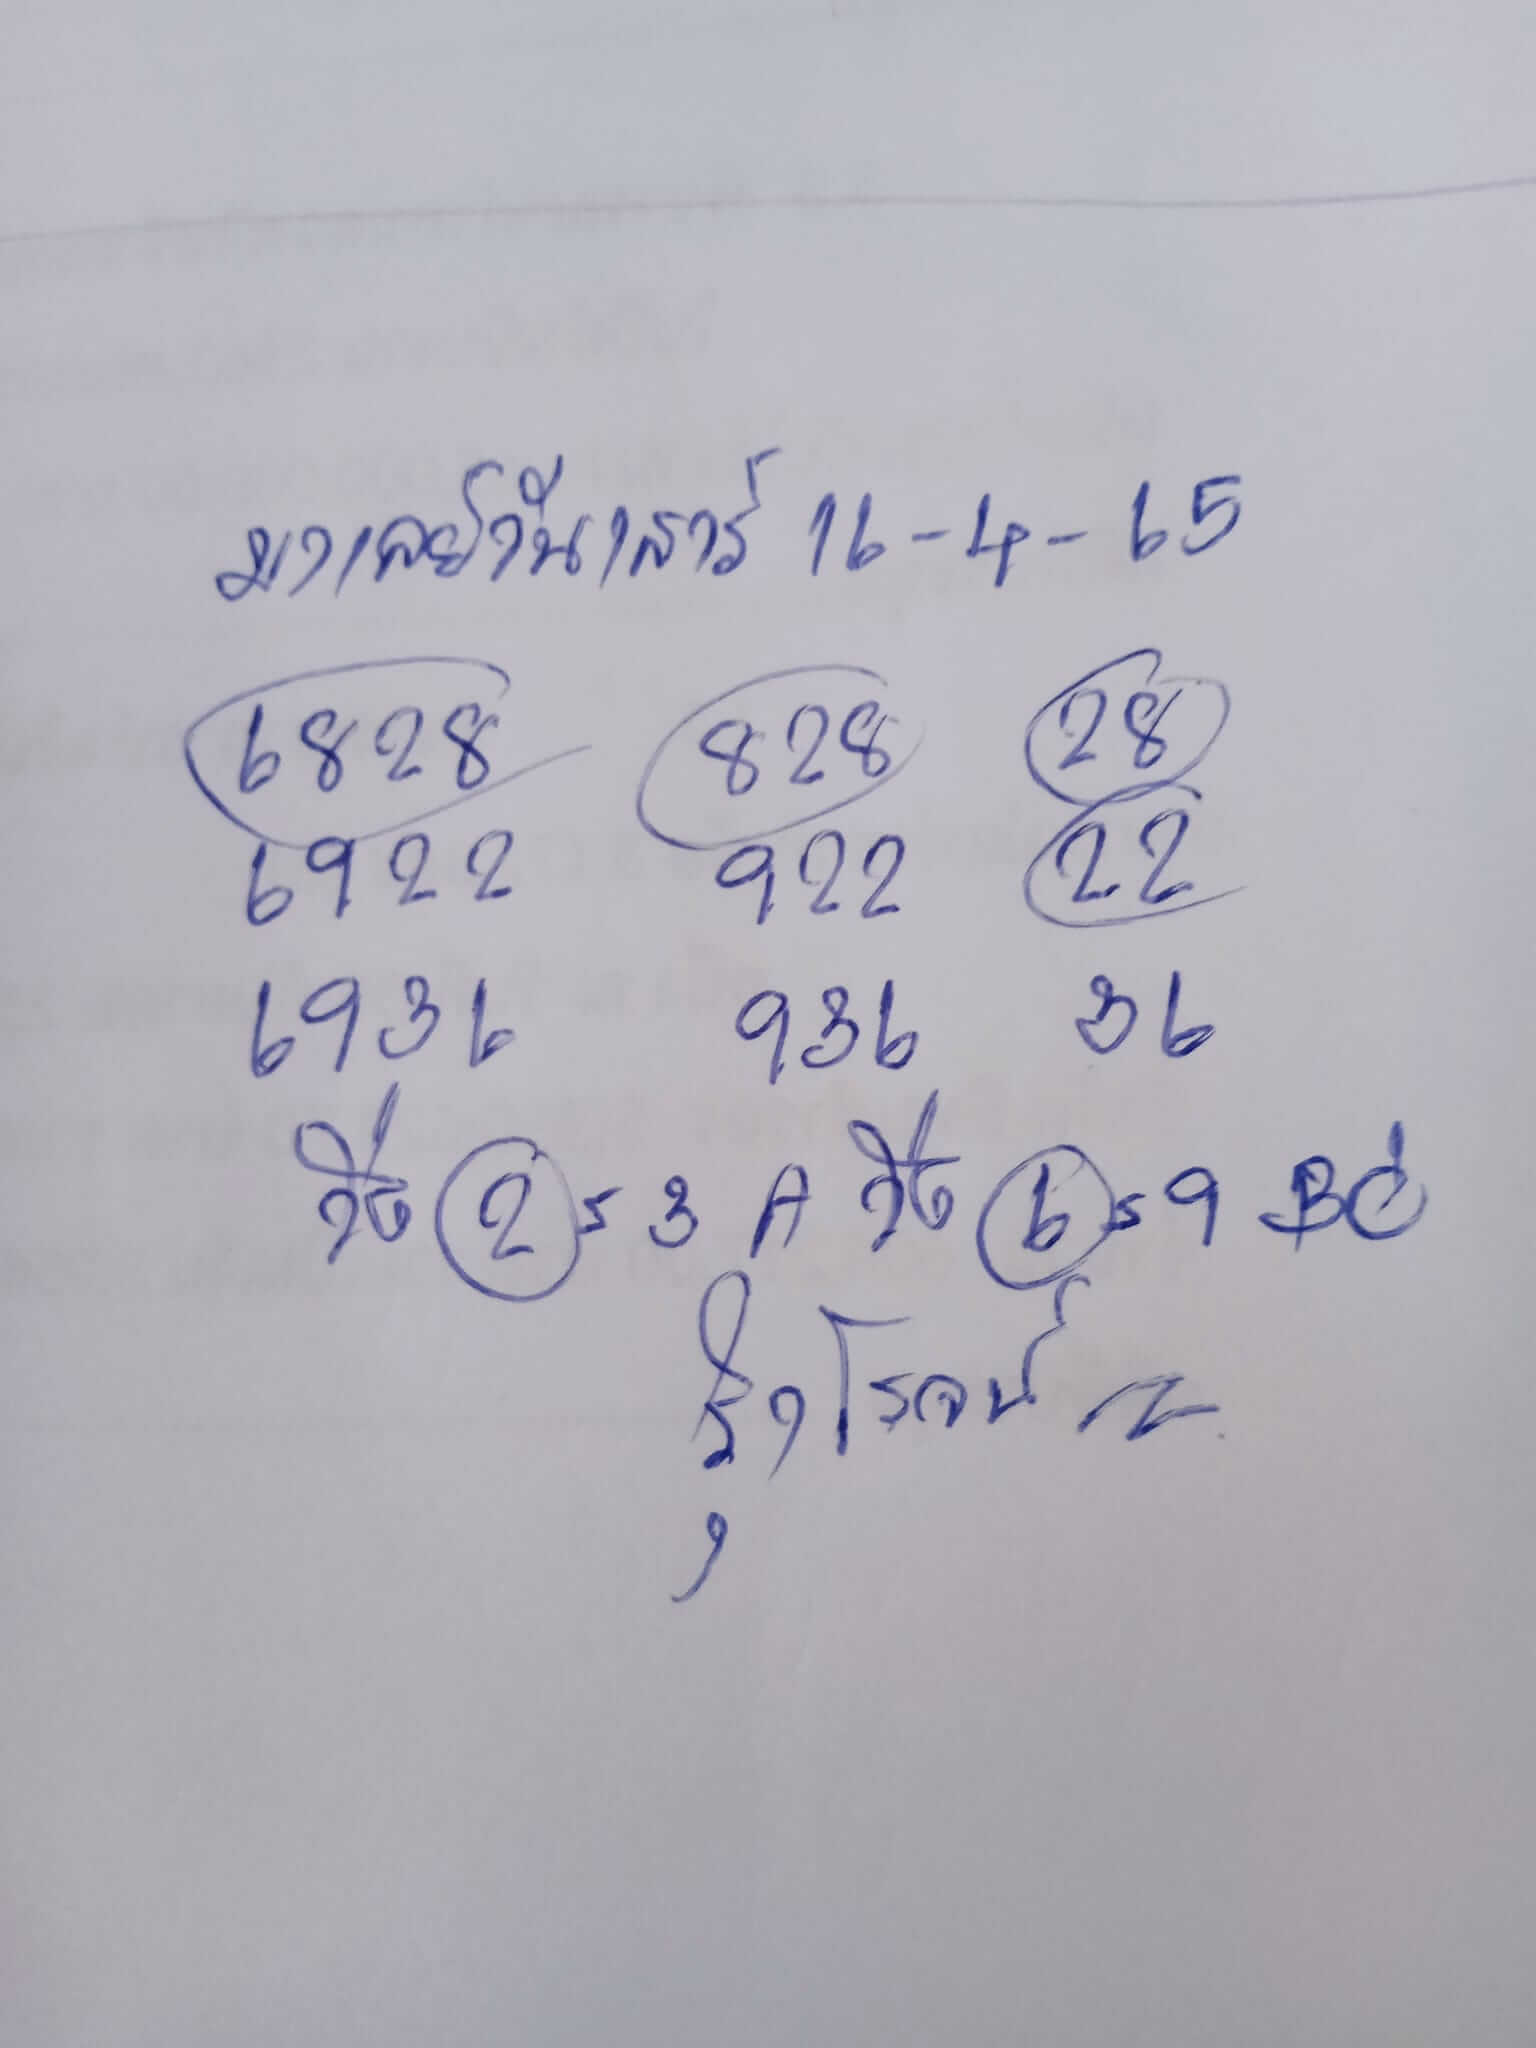 มาเลย์วันเสาร์ 16-4-65
6828 828 28
6922 922 22
6936 936 36
วิ่ง 2 ร 3 A วิ่ง 6 ร 9 BC
โรจน์